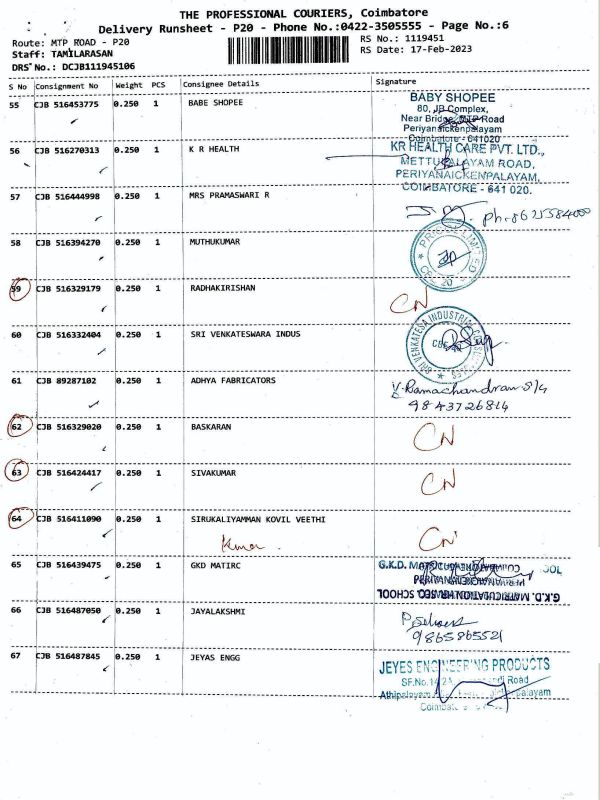 THE PROFESSIONAL COURIERS, Coimbatore
Delivery Runsheet - P20 - Phone No.:0422-3505555 - Page No.:6
Route: MTP ROAD - P20
RS No.: 1119451
Staff: TAMILARASAN
RS Date: 17-Feb-2023
DRS No.: DCJB111945106
S No Consignment No Weight PCS Consignee Details Signature
55 CJB 516453775 0.250 1 BABE SHOPEE
BABY SHOPEE
80, JB Complex,
Near Bridge, MTP Road
Periyanaickenpalayam
Coimbatore - 641020
56 CJB 516270313 0.250 1 K R HEALTH
KR HEALTH CARE PVT. LTD.,
METTUPALAYAM ROAD,
PERIYANAICKENPALAYAM,
COIMBATORE - 641 020.
57 CJB 516444998 0.250 1 MRS PRAMASWARI R
58 CJB 516394270 0.250 1 MUTHUKUMAR
59 CJB 516329179 0.250 1 RADHAKIRISHAN
CN
60 CJB 516332404 0.250 1 SRI VENKATESWARA INDUS
61 CJB 89287102 0.250 1 ADHYA FABRICATORS
V. Ramachandran S/G
9843726814
62 CJB 516329020 0.250 1 BASKARAN
CN
63 CJB 516424417 0.250 1 SIVAKUMAR
CN
64 CJB 516411090 0.250 1 SIRUKALIYAMMAN KOVIL VEETHI
CN
65 CJB 516439475 0.250 1 GKD MATIRC
G.K.D. MATRICULATION HR. SEC. SCHOOL
66 CJB 516487050 0.250 1 JAYALAKSHMI
9865865521
67 CJB 516487845 0.250 1 JEYAS ENGG
JEYES ENGINEERING PRODUCTS